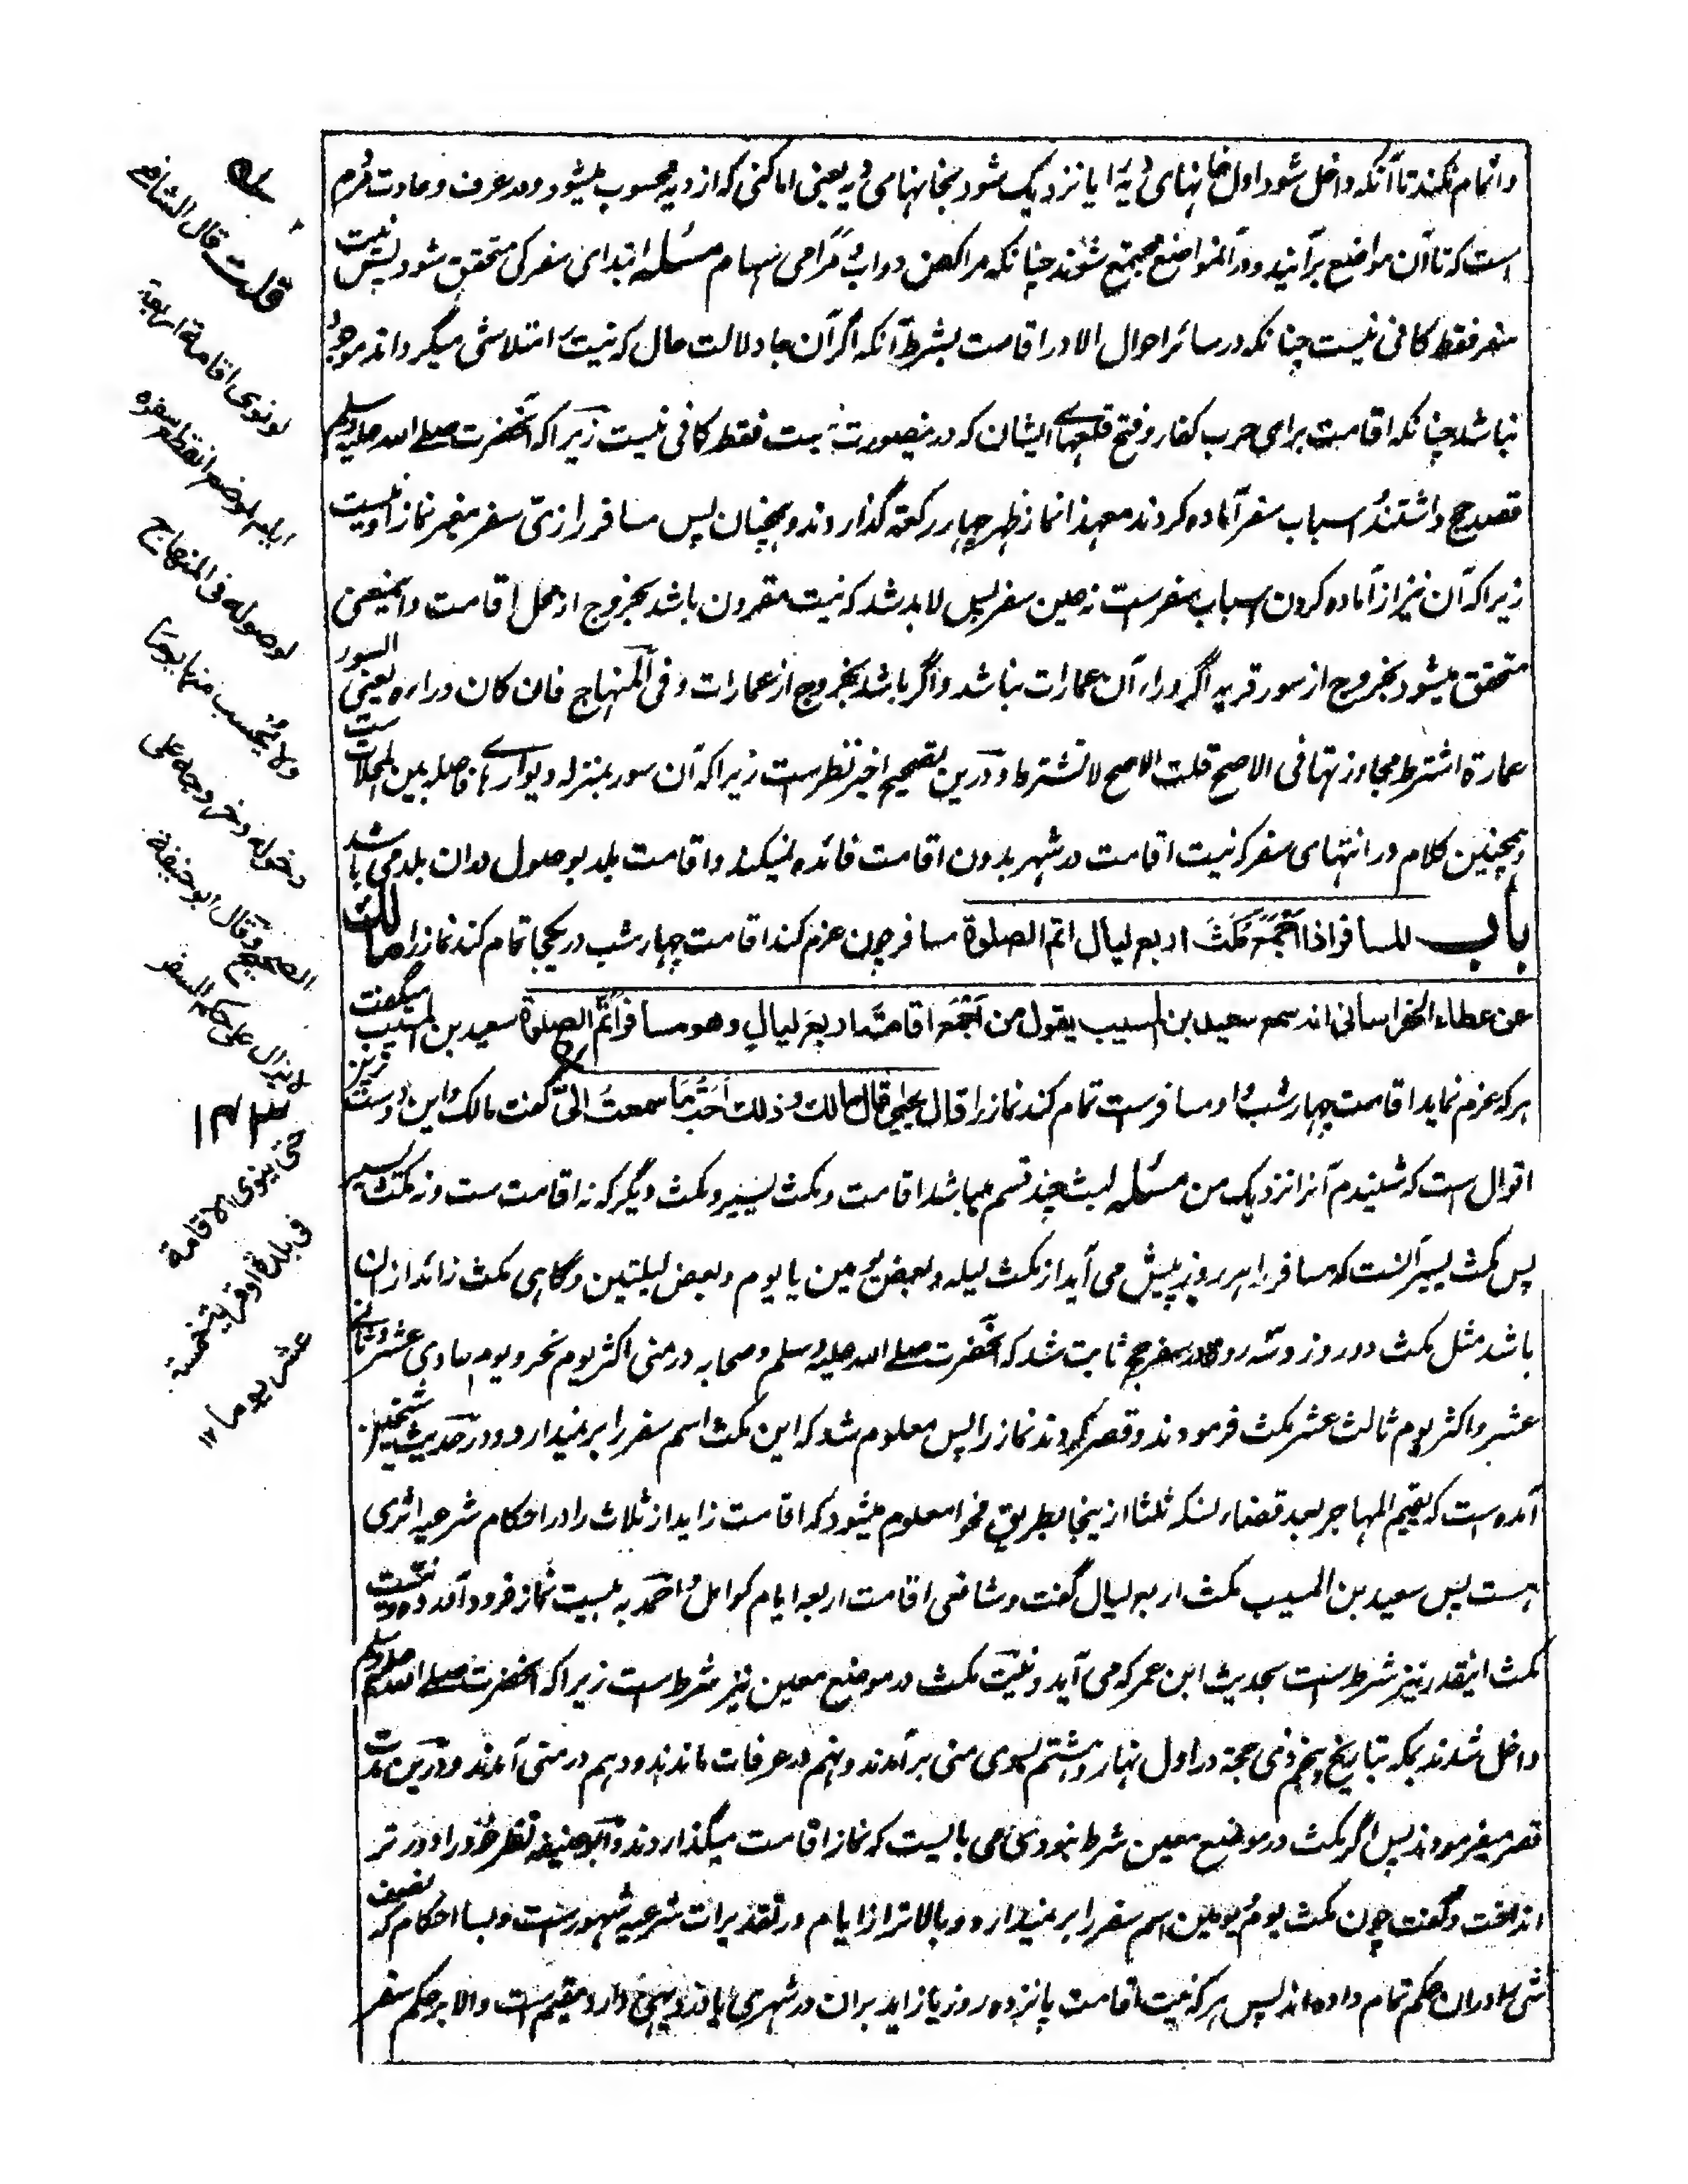 و اتمام نکند تا آنکه داخل شود اول خانهای قریه را یا نزدیک شود بخانهای قریه یعنی اماکنی که از دیه محسوب میشود و در عرف و عادت مردم
است که تا آن مواضع برآیند و در آنمواضع مجتمع شوند چنانکه مراکض دواب و مرامی سهام مسئله ابتدای سفر کی متحقق شود پس نیت
سفر فقط کافی نیست چنانکه در سائر احوال الا در اقامت بشرط آنکه اگر آن جا دلالت حال که نیت را متلاشی میگرداند موجود
نباشد چنانکه اقامت برای حرب کفار و فتح قلعهای ایشان که درینصورت نیت فقط کافی نیست زیراکه آنحضرت صلی الله علیه وسلم
قصد حج داشتند و اسباب سفر آماده کردند معهذا نماز ظهر چهار رکعة گذاردند و همچنان پس مسافر را زی سفر مغیر نماز او نیست
زیراکه آن نیز از آماده کردن اسباب سفرست نه عین سفر پس لابد شد که نیت مقرون باشد بخروج از محل اقامت و اینمعنی
متحقق میشود بخروج از سور قریه اگر وراء آن عمارات نباشد و اگر باشد بخروج از عمارات و فی المنهاج فان کان وراءه یعنی السور
عمارة اشترط مجاوزتها فی الاصح قلت الاصح لا تشترط و درین تصحیح اخیر نظرست زیراکه آن سور بمنزله دیواری ها فاصله بین المحلات ست
و همچنین کلام در انتهای سفر که نیت اقامت در شهر بدون اقامت فائده نمیکند و اقامت بلد بوصول دران بلد می باشد
باب للمسافر اذا اجمع مکث اربع لیال اتم الصلوة مسافر چون عزم کند اقامت چهار شب در یکجا تمام کند نماز را مالك
عن عطاء الخراسانی انه سمع سعید بن المسیب یقول من اجمع اقامة اربع لیال وهو مسافر اتم الصلوة سعید بن المسیب میگفت
هر که عزم نماید اقامت چهار شب و او مسافرست تمام کند نماز را قال یحیی قال مالك وذلك احب ما سمعت الیّ گفت مالک و این دوست ترین
اقوال است که شنیدم آنرا نزدیک من مسئله لبث چند قسم میباشد اقامت و مکث یسیر و مکث دیگر که نه اقامت ست و نه مکث یسیر
پس مکث یسیر آنست که مسافر را هر روز پیش می آید از مکث لیله و بعض یومین یا یوم و بعض لیلتین و گاهی مکث زائد ازان
باشد مثل مکث دو روز و سه روز و در سفر حج ثابت شد که آنحضرت صلی الله علیه وسلم و صحابه در منی اکثر یوم نحر و یوم حادی عشر و ثانی
عشر و اکثر یوم ثالث عشر مکث فرمودند و قصر کردند نماز را پس معلوم شد که این مکث اسم سفر را برنمیدارد و در حدیث شیخین
آمده است که یقیم المهاجر بعد قضاء نسکه ثلثا ازینجا بطریق فحوا معلوم میشود که اقامت زاید از ثلاث را در احکام شرعیه اثری
هست پس سعید بن المسیب مکث اربع لیال گفت و شافعی اقامت اربعه ایام کوامل و احمد به بیست نماز فرود آمده و نیت
مکث اینقدر نیز شرط ست بحدیث ابن عمر که می آید و نیت مکث در موضع معین نیز شرط ست زیراکه آنحضرت صلی الله علیه وسلم
داخل شدند بمکه بتاریخ پنجم ذی حجة در اول نهار و هشتم بسوی منی برآمدند و نهم در عرفات ماندند و دهم در منی آمدند و درین مدت
قصر میفرمودند پس اگر مکث در موضع معین شرط نبودی می بایست که نماز اقامت میگذاردند و ابوحنیفه نظر خود را دورتر
انداخت و گفت چون مکث یوم و یومین اسم سفر را برنمیدارد و بالاتر از ایام در تقدیرات شرعیه شهورست و بسا احکام که نصف
شی را دران حکم تمام داده اند پس هر که نیت اقامت پانزده روز یا زاید بران در شهری یا در دیهی دارد مقیم ست والا بر حکم سفر
قلت قال الشافعی
لو نوی اقامة اربعة
ایام بموضع انقطع سفره
بوصوله فی المنهاج
ولا یحسب منها یوما
دخوله وخروجه علی
الصحیح وقال ابو حنیفة
لا یزال علی حکم السفر
حتی ینوی الاقامة
فی بلدة او قریة خمسة
عشر یوما ۱۲